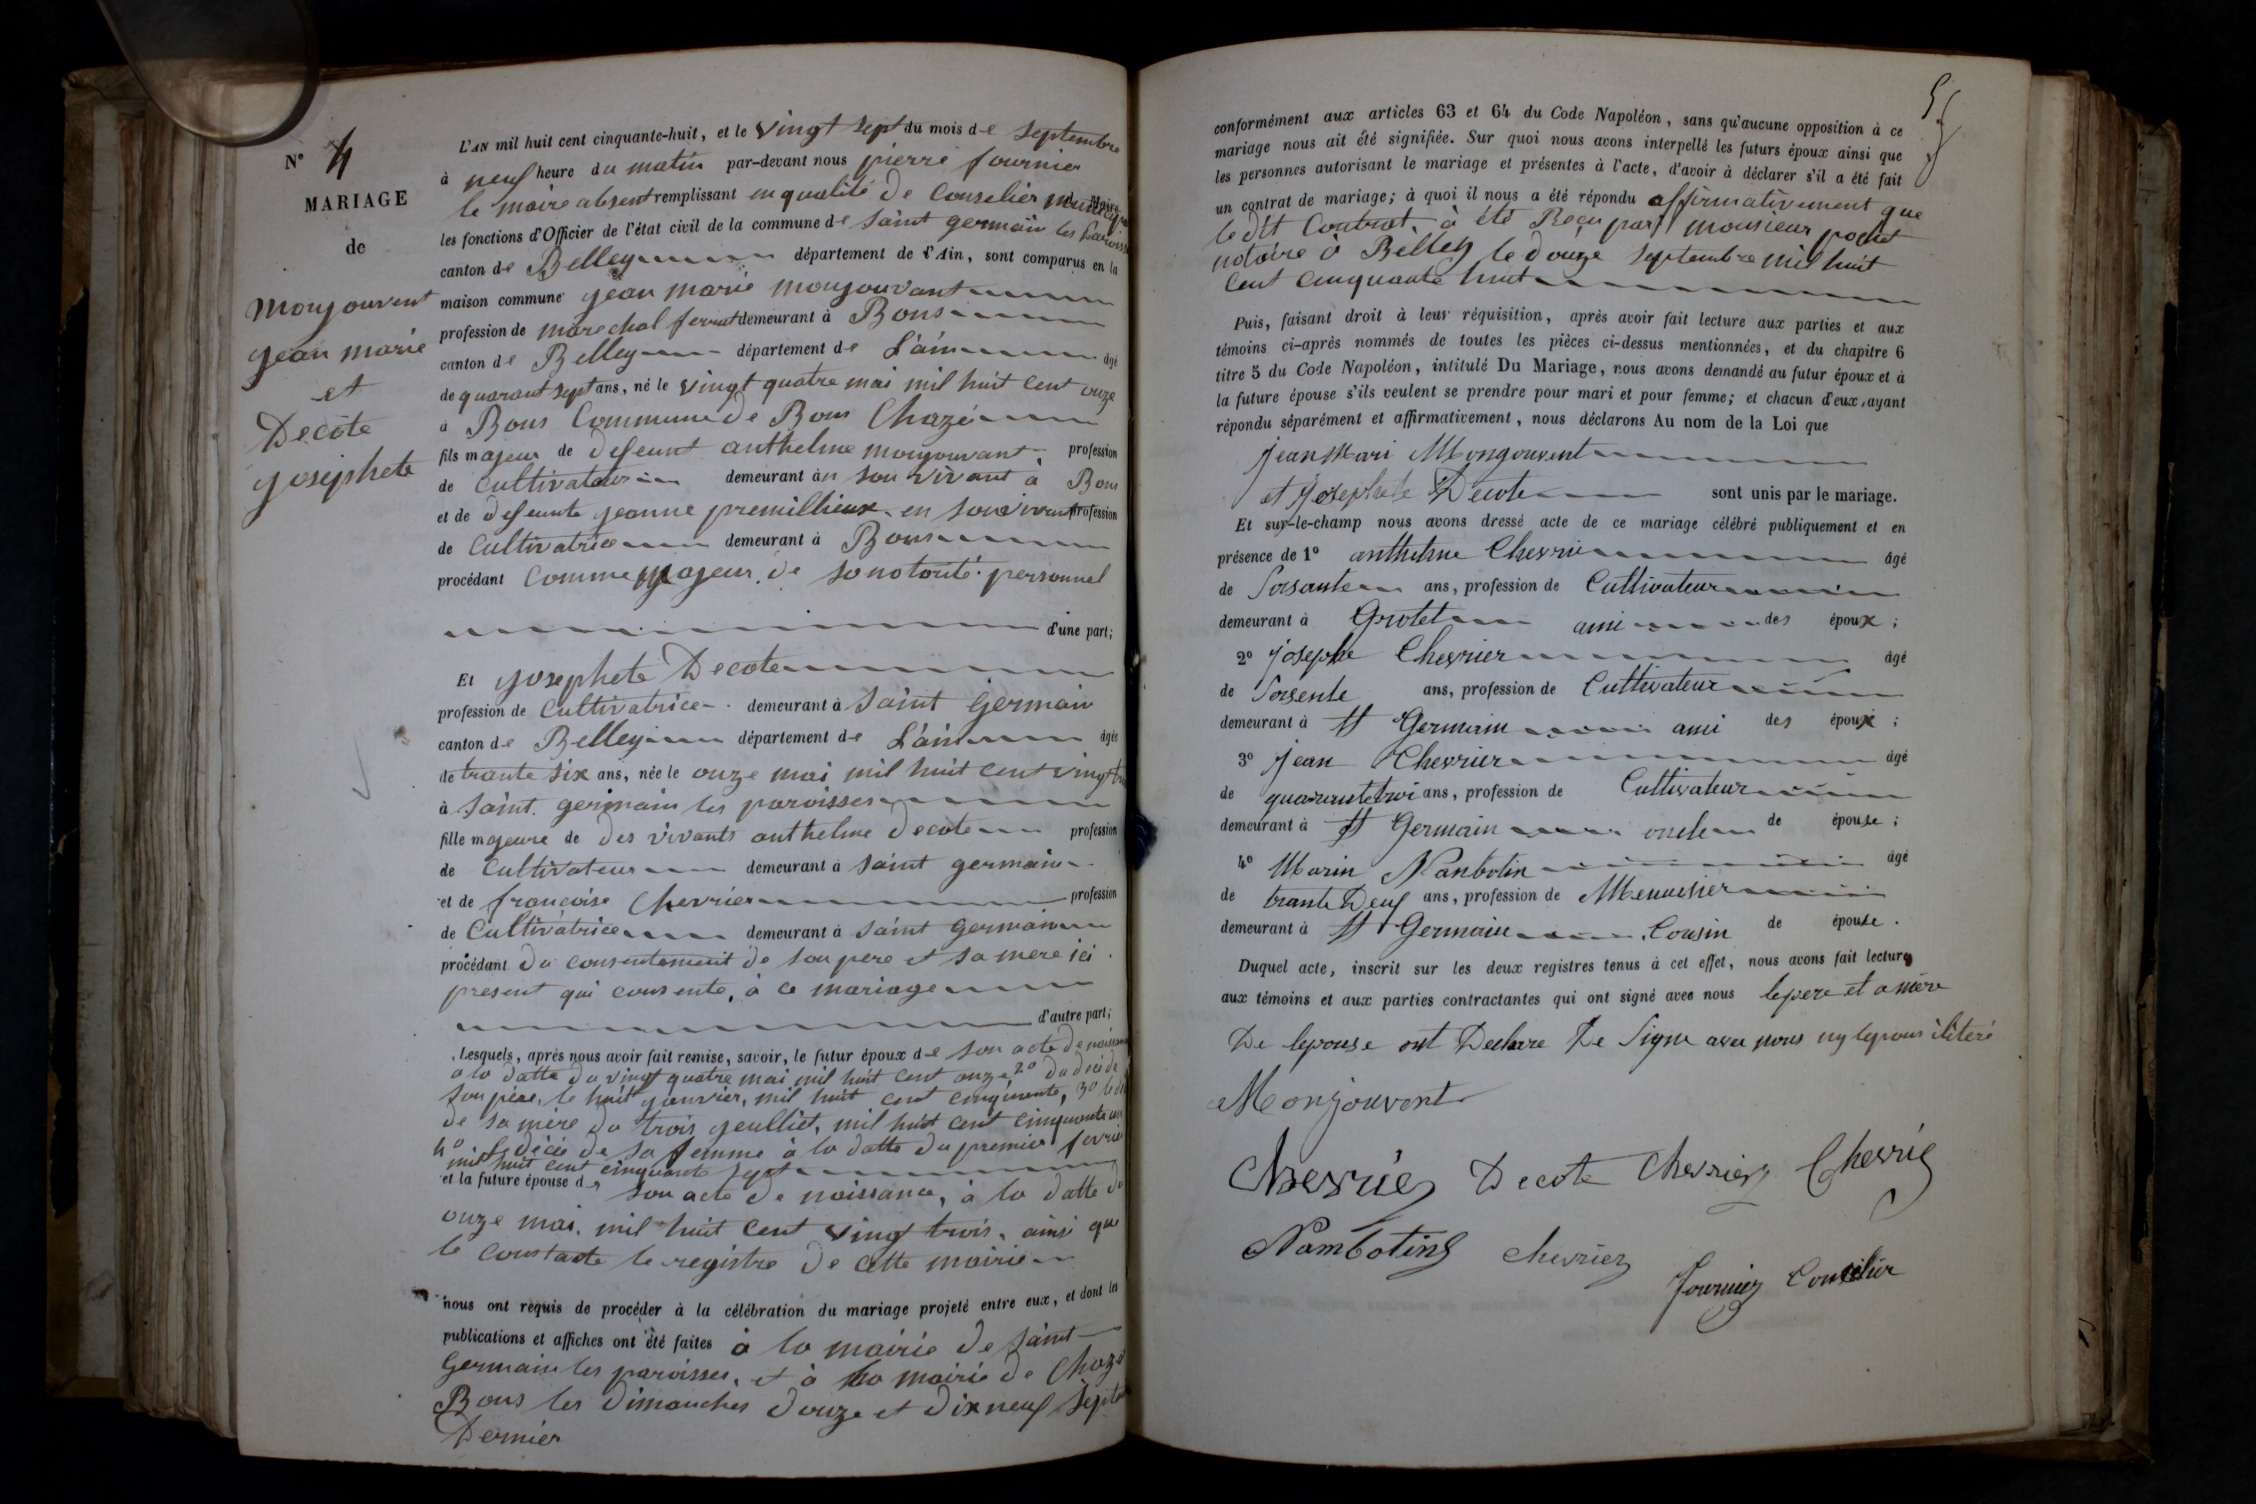 N° 4
MARIAGE
de
Monjouvent
jean marie
et
Decote
josephete
L'AN mil huit cent cinquante-huit, et le vingt sept du mois de septembre
à neuf heure du matin par-devant nous pierre fournier
le maire absent remplissant en qualité de conselier municipal
les fonctions d'Officier de l'état civil de la commune de saint germain les paroisses
canton de Belley département de l'Ain, sont comparus en la
maison commune jean marie monjouvant
profession de marechal ferrant demeurant à Bons
canton de Belley département de L'ain âgé
de quarant sept ans, né le vingt quatre mai mil huit cent onze
à Bons Commune de Bons Chazé
fils majeur de defeunt anthelme monjouvant profession
de cultivateur demeurant à en son vivant à Bons
et de defeunte jeanne premillieux en son vivant profession
de cultivatrice demeurant à Bons
procédant comme majeur de sonotorité personnel
d'une part;
Et josephete Decote
profession de cultivatrice demeurant à saint germain
canton de Belley département de L'ain âgée
de trante six ans, née le onze mai mil huit cent vingt
à saint germain les paroisses
fille majeure de des vivants anthelme decote profession
de cultivateur demeurant à saint germain
et de francoise Chevrier profession
de Cultivatrice demeurant à saint germain
procédant du consentement de son pere et sa mere ici
present qui consente, à ce mariage
d'autre part;
Lesquels, après nous avoir fait remise, savoir, le futur époux de son acte de naissance
a la datte du vingt quatre mai mil huit cent onze, 2° du décé de
son père, le huit janvier, mil huit cent cinquante, 3°
de sa mère du trois jeulliet, mil huit cent cinquante un
4° le décée de sa femme à la datte du premier fevrier
mil huit cent cinquante sept
et la future épouse de son acte de naissance, à la datte du
onze mai mil huit cent vingt trois, ainsi que
le constacte le registre de cette mairie
nous ont requis de procéder à la célébration du mariage projeté entre eux, et dont les
publications et affiches ont été faites à la mairie de saint
Germain les paroisses, et à la mairie de Chazé
Bons les dimanches douze et dix neuf septe
Dernier
conformément aux articles 63 et 64 du Code Napoléon, sans qu'aucune opposition à ce
mariage nous ait été signifiée. Sur quoi nous avons interpellé les futurs époux ainsi que
les personnes autorisant le mariage et présentes à l'acte, d'avoir à déclarer s'il a été fait
un contrat de mariage; à quoi il nous a été répondu affirmativement que
le dit Contrat à été Reçu par monsieur pochet
notaire à Belley le douze septembre mil huit
cent cinquante huit
Puis, faisant droit à leur réquisition, après avoir fait lecture aux parties et aux
témoins ci-après nommés de toutes les pièces ci-dessus mentionnées, et du chapitre 6
titre 5 du Code Napoléon, intitulé Du Mariage, nous avons demandé au futur époux et à
la future épouse s'ils veulent se prendre pour mari et pour femme; et chacun d'eux, ayant
répondu séparément et affirmativement, nous déclarons Au nom de la Loi que
jean Mari Mongouvent
et Josephete Decote sont unis par le mariage.
Et sur-le-champ nous avons dressé acte de ce mariage célébré publiquement et en
présence de 1° anthelme Chevrie âgé
de Soisante ans, profession de Cultivateur
demeurant à Grotet ami des époux;
2° josephe Chevrier âgé
de Soisente ans, profession de Cultivateur
demeurant à St Germain ami des époux;
3° jean Chevrier âgé
de quarantetroi ans, profession de Cultivateur
demeurant à St Germain oncle de épouse;
4° Marin Nanbotin âgé
de trante Deuf ans, profession de Menuisier
demeurant à St Germain Cousin de épouse.
Duquel acte, inscrit sur les deux registres tenus à cet effet, nous avons fait lecture
aux témoins et aux parties contractantes qui ont signé avec nous lepere et a mère
De lepouse ont Declare De Signe avec nous ny lepous ilitéré
Monjouvent
Chevrier Decote Chevrier Chevrié
Nambotin Chevrier
Fournier Conselier